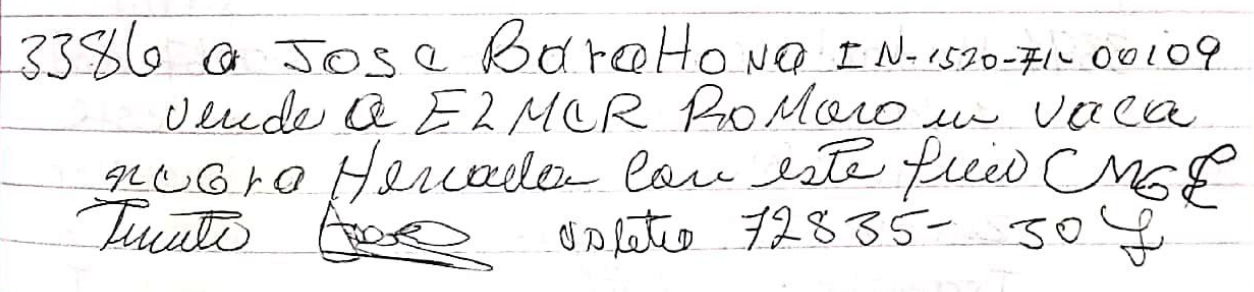 3386 a Josa BaraHona IN-1520-71-00109
vende a ELMCR RoMaro un vaca
negra Herrada con este fierro
boleto 72835- 30